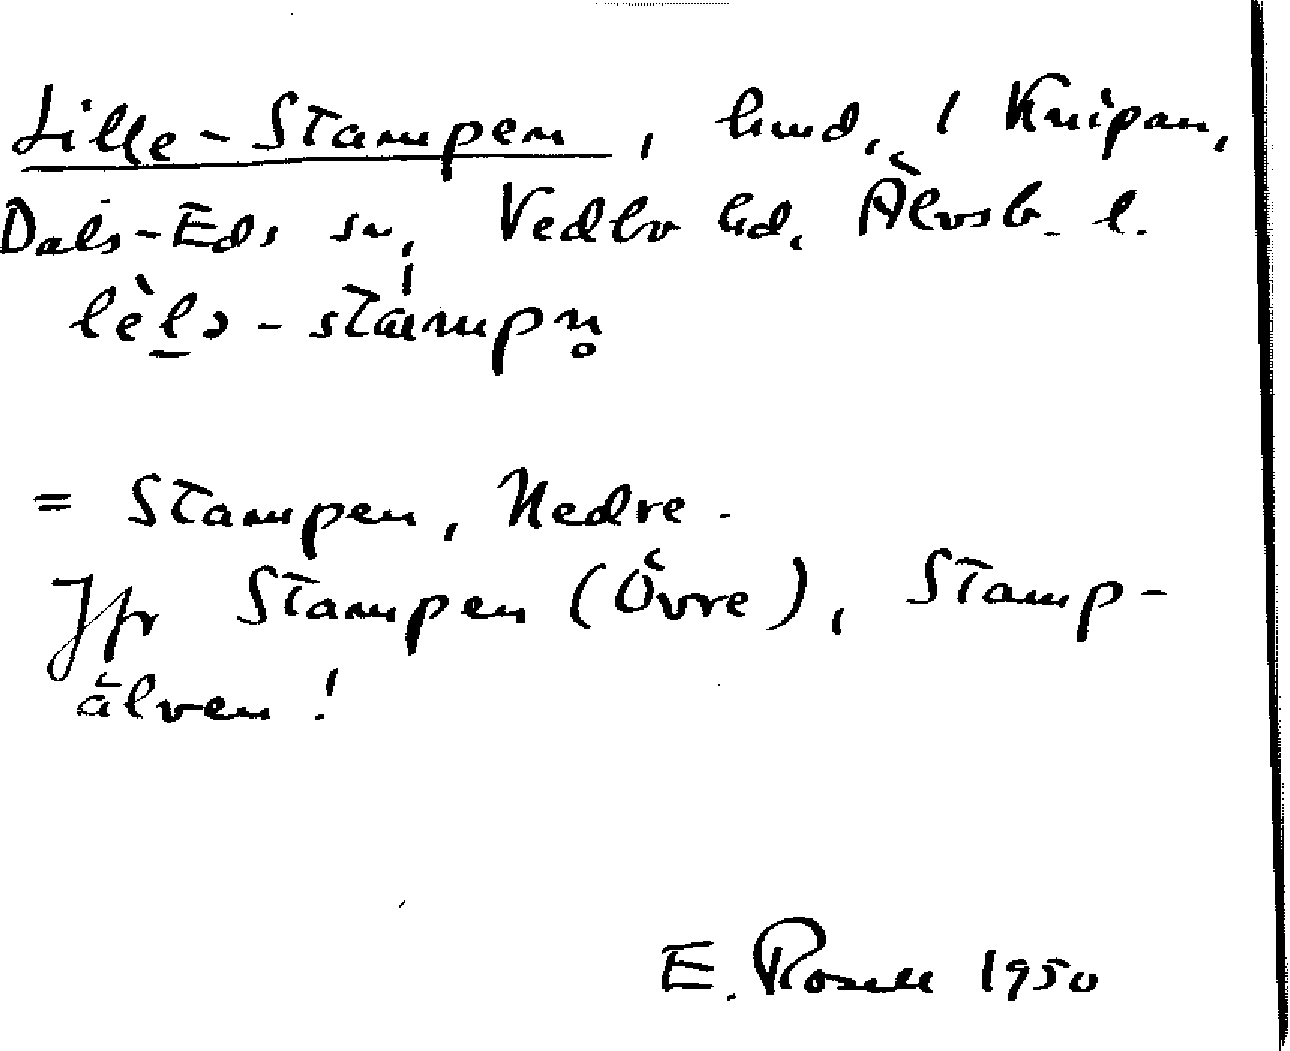 Lille-Stampen, hmd, / Knipan,
Dals-Eds sn, Vedbo hd, Älvsb. l.
= Stampen, Nedre.
Jfr Stampen (Övre), Stamp-
älven!
E. Rosell 1950